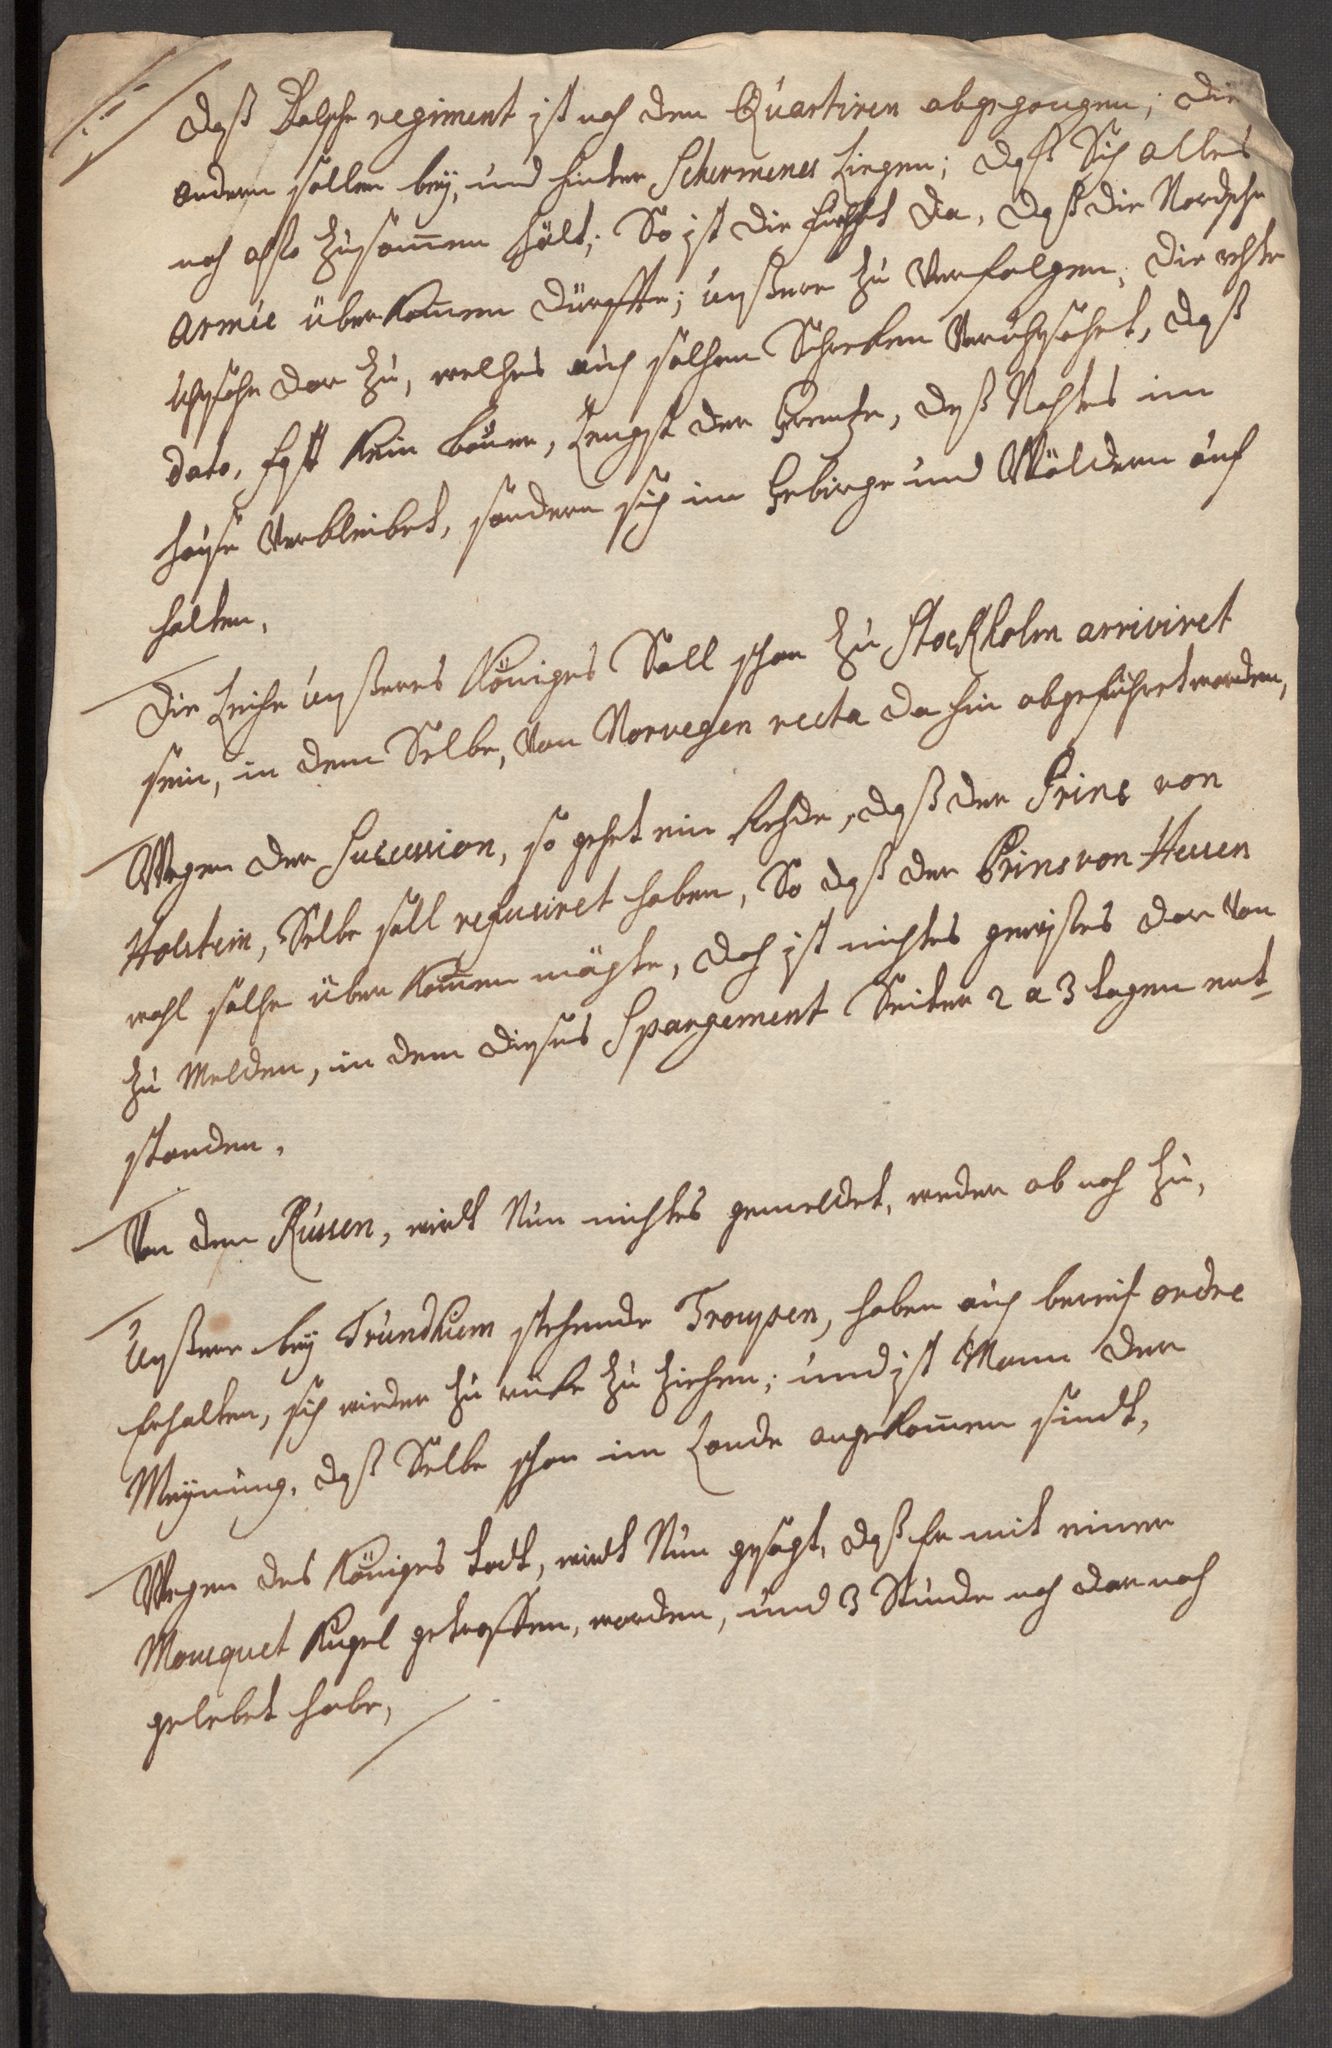 daß Dalsche regiment ist nach den Quartiren abgegangen; die
andern sollen bey, und hinter Schermenes Liegen; daß Sich alles
noch also zusam̄en hält; So ist die furcht da, daß die Nordsche
Armée überkom̄en dürffte; unßere zu Verfolgen; die rechte
Uhrsache dar zu, welches auch solchen Schreken Veruhrsachet, daß
dato, fast kein baur, Lengst der Grentze, deß Nachtes im
hause Verbleibet, sondern sich im Gebirge und Wäldern auf
halten,
Die Leiche unßeres Königes Soll schon zu Stockholm arriviret
sein, in dem Selbe, von Norvegen recta da hin abgeführet worden,
Wegen der Sucession, so gehet ein Rehde, daß der Prins von
Holstein, Selbe soll refusiret haben, So daß der Prins von Hessen
wohl solche über kom̄en mögte, doch ist nichtes gewißes dar von
zu Melden, in dem dieses Spargement Seiter 2 a 3 tagen ent-
standen,
Von den Russen, wirdt Nun nichtes gemeldet, weder ab noch zu,
Unßere bey Trundhiem stehende Troupen, haben auch bereit ordre
Erhalten, sich wieder zu rüke zu ziehen; und ist Mann der
Meynung, daß Selbe schon im Lande angekom̄en sindt,
Wegen des Königes todt, wirdt Nun gesagt, daß Er mit einer
Mousquet Kugel getroffen, worden, und 3 Stunde noch dar nach
gelebet habe,